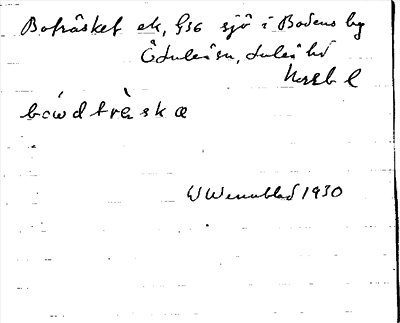 Boträsket ek, G36 sjö i Bodens lzg
Ö Luleå sn, Luleå hd
Norrb l
bówdtrèskæ
W Wennblad 1930